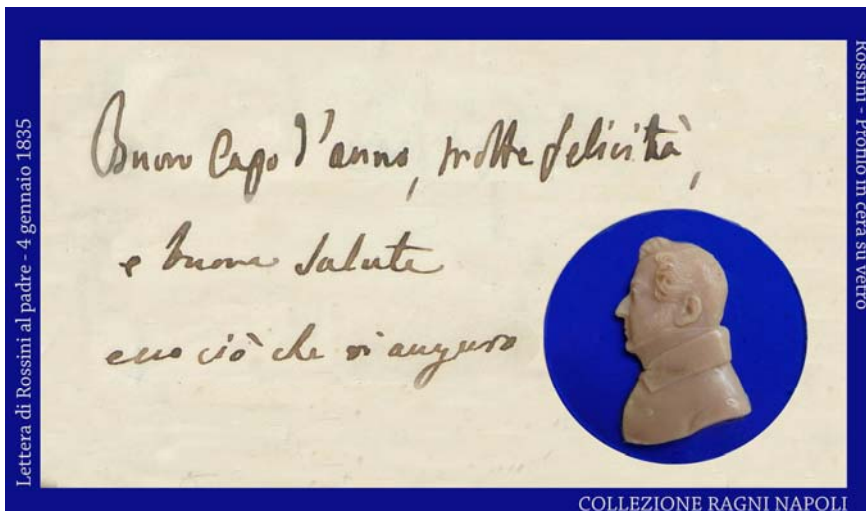 Lettera di Rossini al padre - 4 gennaio 1835
Buon Capo d'anno, molte felicità,
e buona salute
ecco ciò che vi auguro
Rossini - Profilo in cera su vetro
COLLEZIONE RAGNI NAPOLI